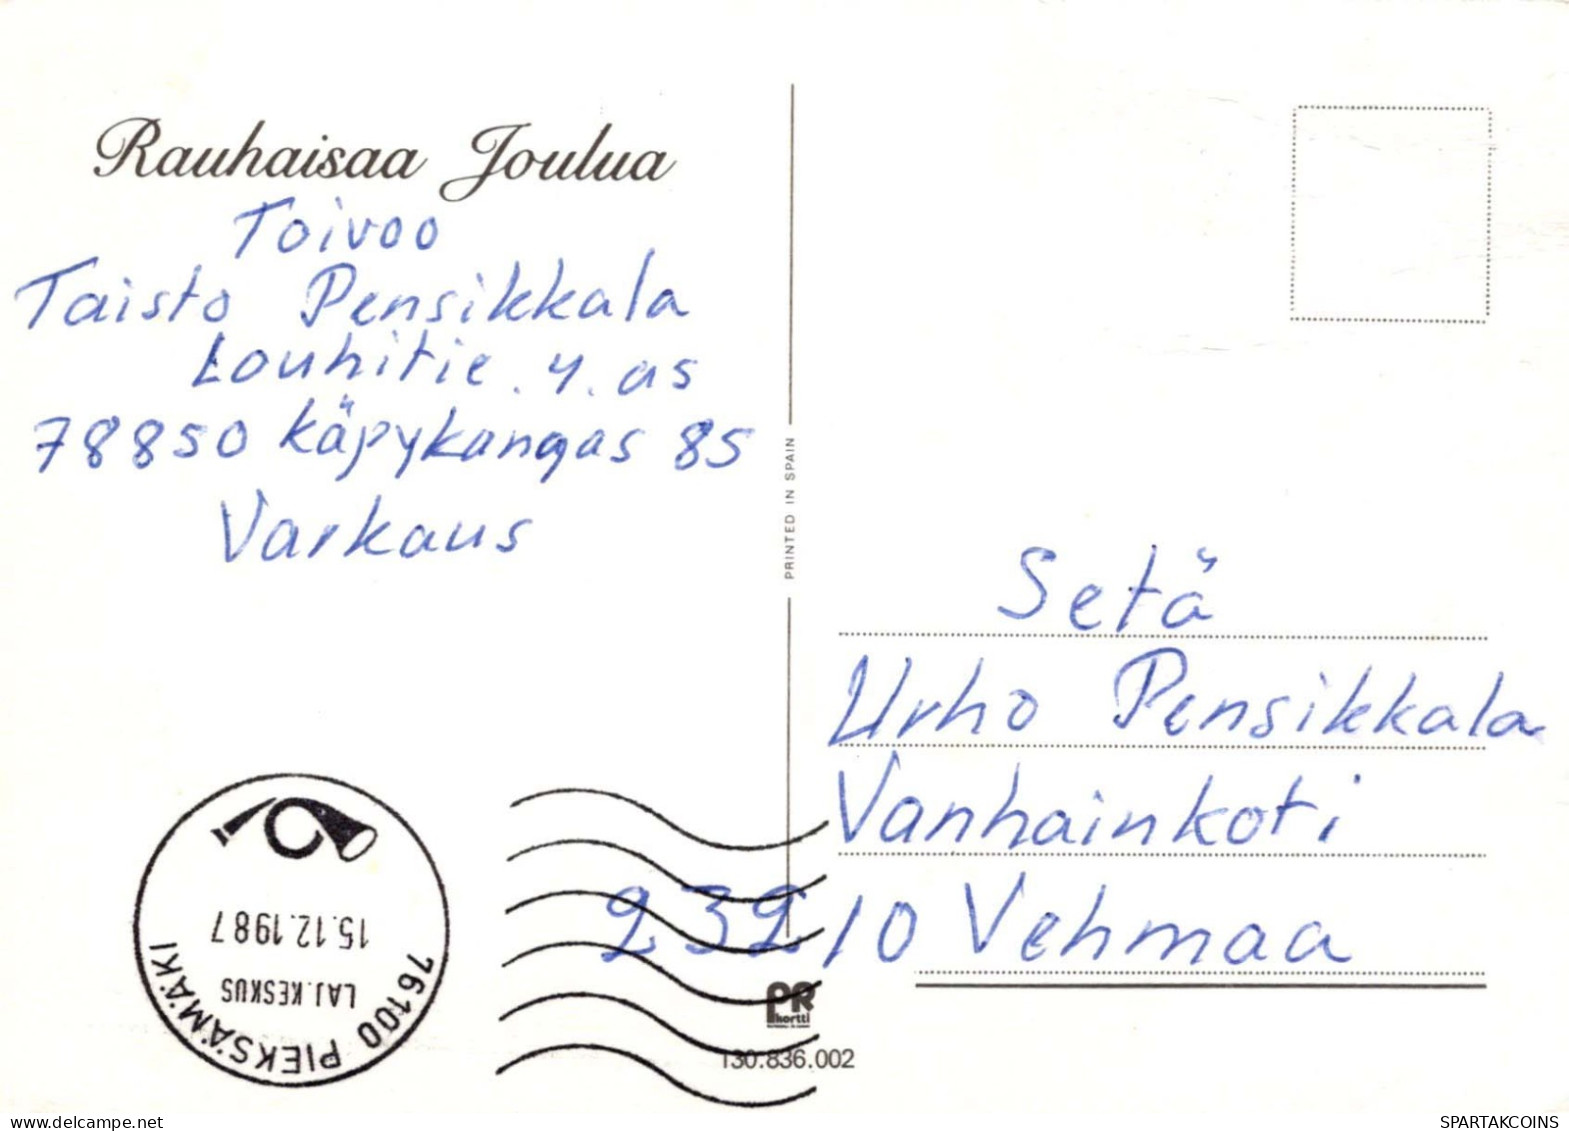 Rauhaisaa Joulua
Toivoo
Taisto Pensikkala
Louhitie. 4. as
78850 Käpykangas 85
Varkaus
PRINTED IN SPAIN
Setä
Urho Pensikkala
Vanhainkoti
23210 Vehmaa
15.12.1987
LAJ.KESKUS
76100 PIEKSÄMÄKI
PR
kortti
130.836.002
delcampe.net
SPARTAKCOINS